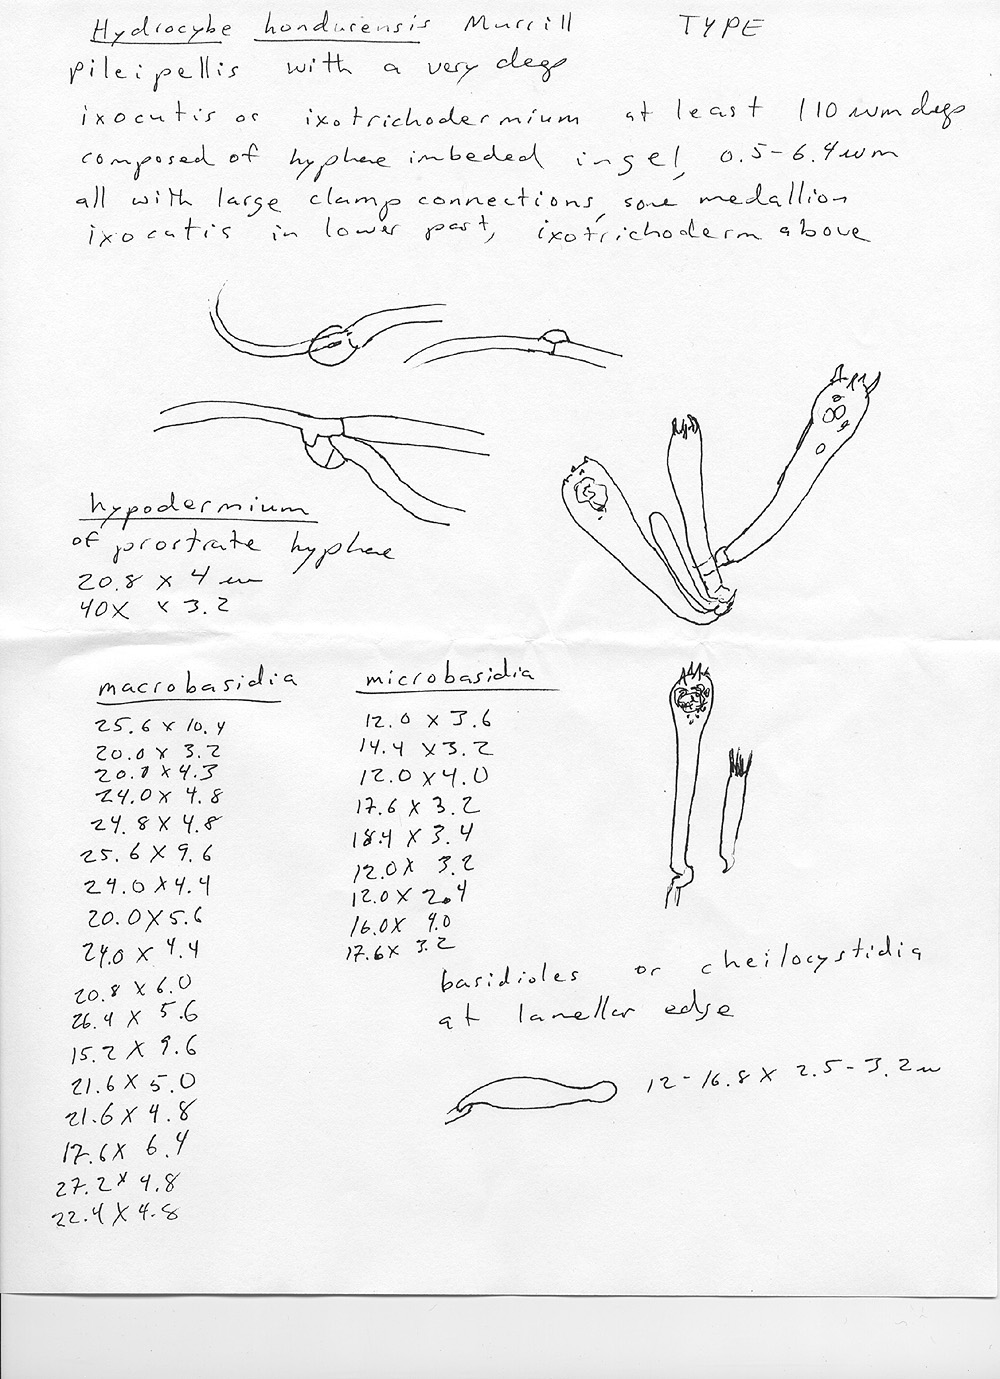 Hydrocybe hondurensis Murrill TYPE
Pileipellis with a very deep
ixocutis or ixotrichodermium at least 110 um deep
composed of hyphae imbeded in gel, 0.5-6.4 um
all with large clamp connections, some medallion
ixocutis in lower part, ixotrichoderm above
hypodermium
of prostrate hyphae
20.8 x 4 um
40x x 3.2
macrobasidia
25.6 x 10.4
20.0 x 3.2
20.0 x 4.3
24.0 x 4.8
24.8 x 4.8
25.6 x 9.6
24.0 x 4.4
20.0 x 5.6
24.0 x 4.4
20.8 x 6.0
26.4 x 5.6
15.2 x 9.6
21.6 x 5.0
21.6 x 4.8
17.6 x 6.4
27.2 x 4.8
22.4 x 4.8
microbasidia
12.0 x 3.6
14.4 x 3.2
12.0 x 4.0
17.6 x 3.2
18.4 x 3.4
12.0 x 3.2
12.0 x 2.4
16.0 x 4.0
17.6 x 3.2
basidioles or cheilocystidia
at lamellar edge
12-16.8 x 2.5-3.2 u